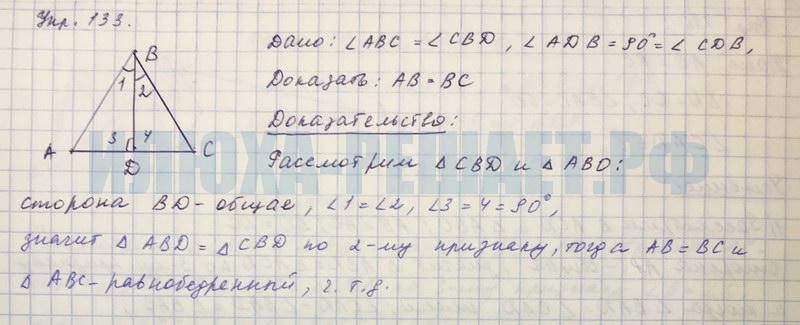 Упр. 133.
B
1 2
3 4
A D C
Дано: ∠ABC = ∠CBD, ∠ADB = 90° = ∠CDB,
Доказать: AB = BC
Доказательство:
Рассмотрим △CBD и △ABD:
сторона BD - общая, ∠1 = ∠2, ∠3 = 4 = 90°,
значит △ABD = △CBD по 2-му признаку, тогда AB = BC и
△ABC - равнобедренный, ч. т. д.
ИЛЮХА-РЕШАЕТ.РФ